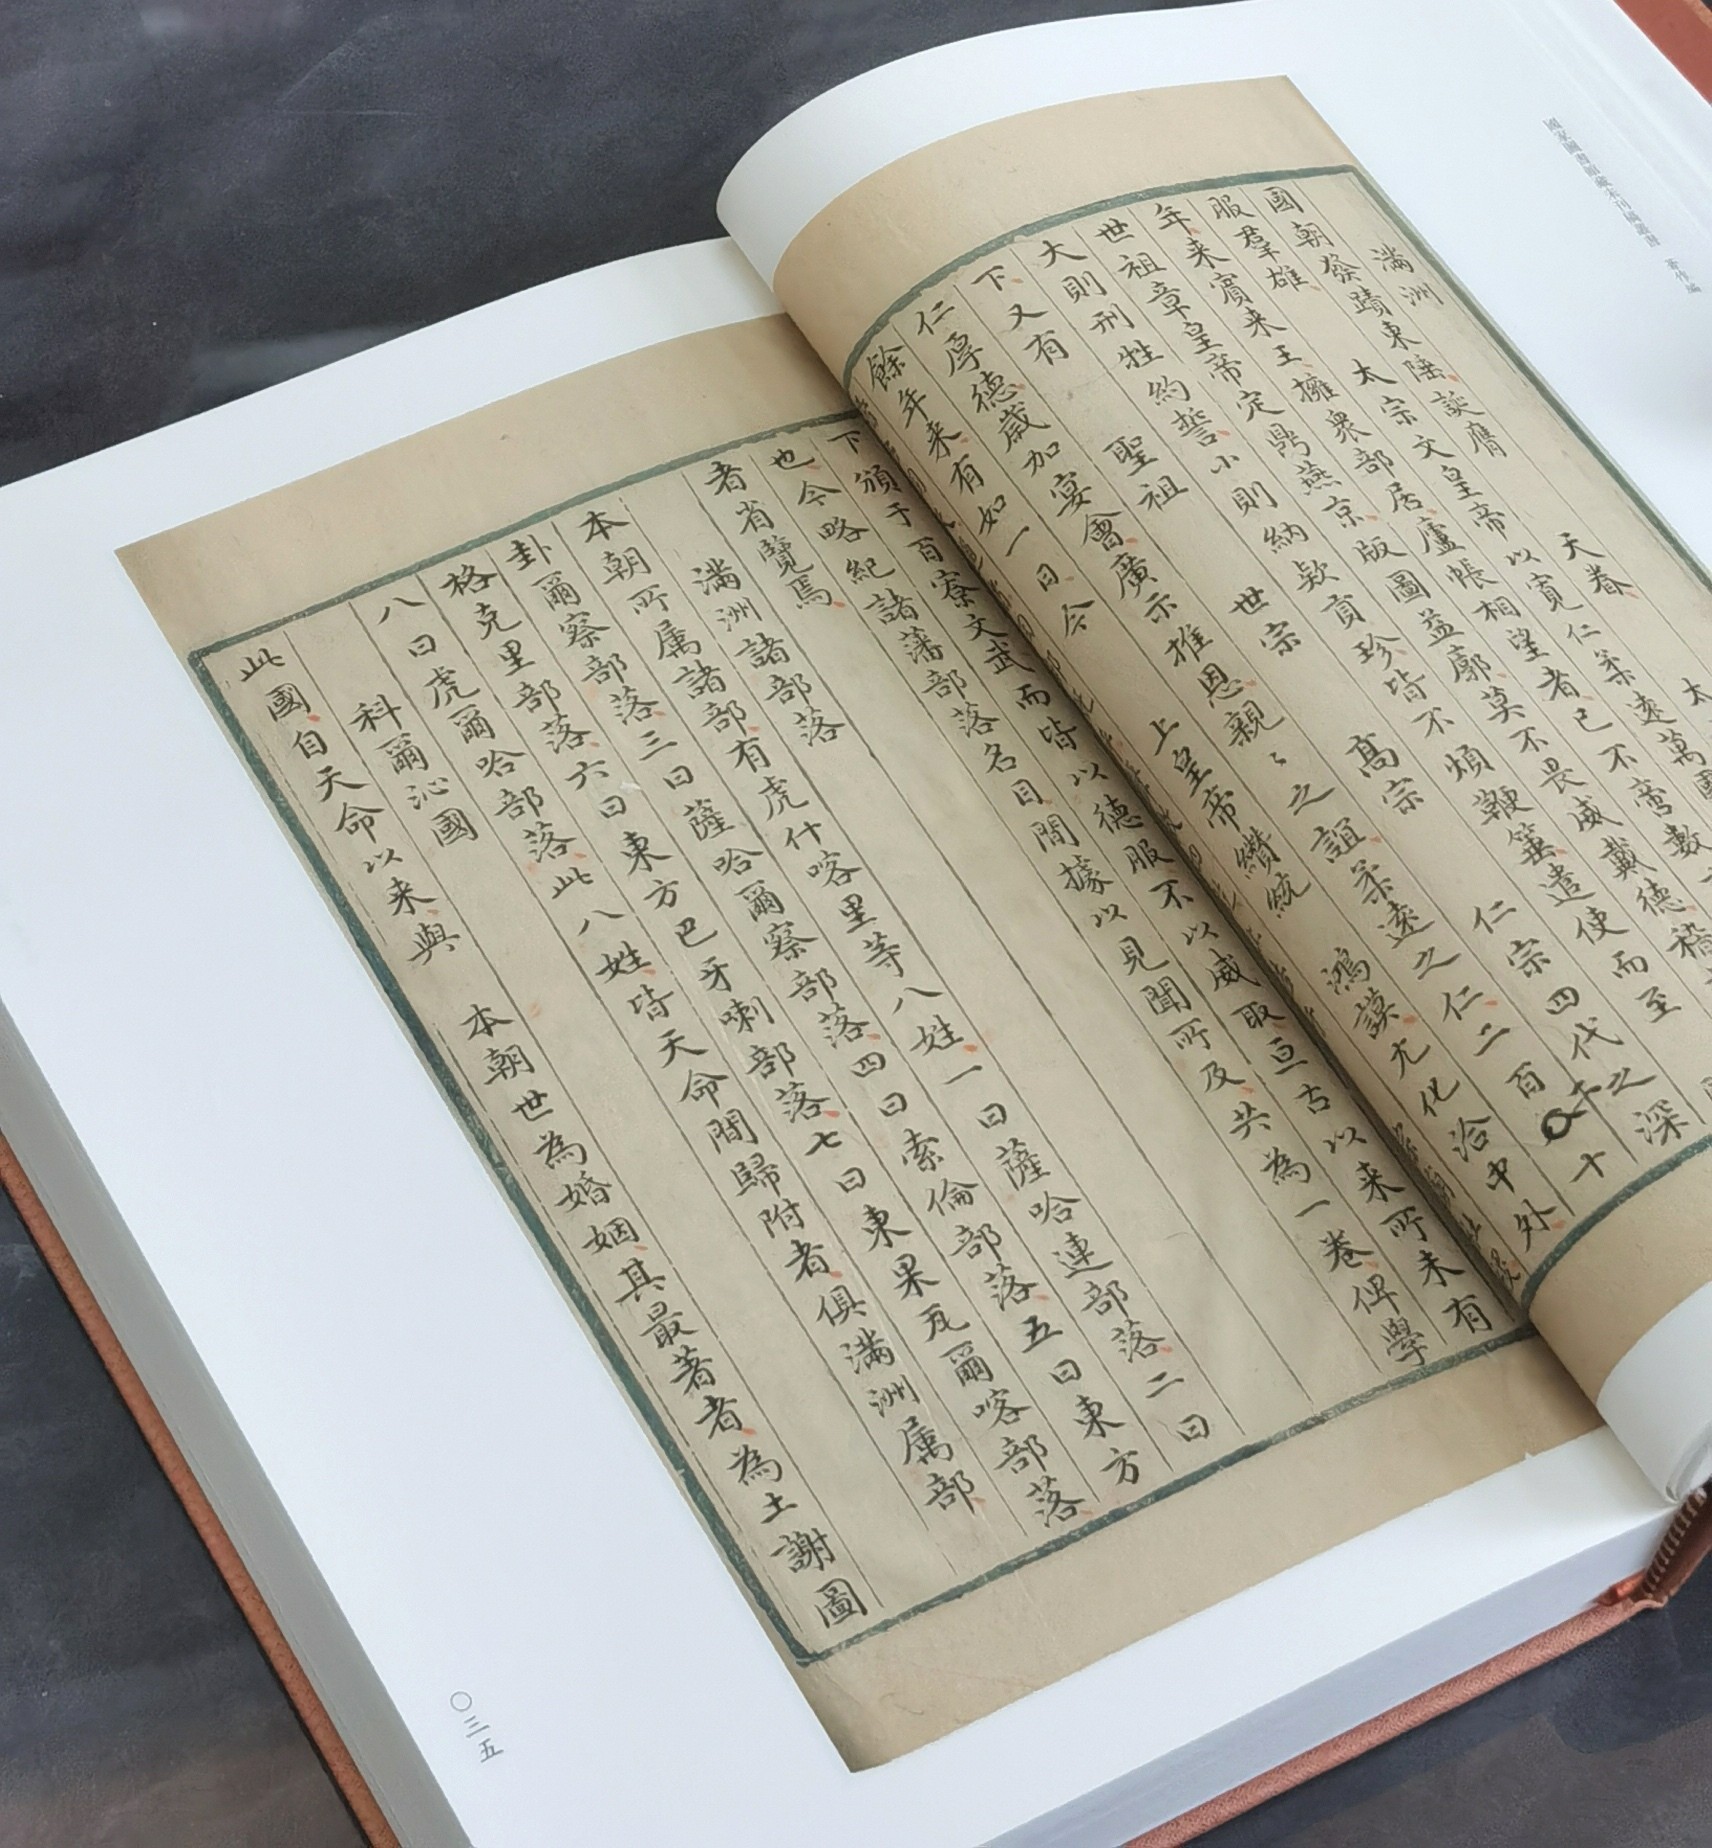 國家圖書館藏未刊稿叢書 著作編
滿洲
國朝發蹟東陲誕膺 天眷 太
服羣雄 太宗文皇帝以寬仁柔遠萬國
年來賓來王擁衆部居廬帳相望者已不啻數
世祖章皇帝定鼎燕京版圖益廓莫不畏威戴德稽
大則刑牲約誓小則納欵貢珍皆不煩鞭箠遣使而至
下又有 聖祖 世宗 高宗 仁宗四代之深
仁厚德歲加宴會廣示推恩親〻之誼柔遠之仁二百十
餘年來有如一日今 上皇帝纘統 鴻謨尤化洽中外
下頒于百寮文武而皆以德服不以威取亘古以來所未有
也今略紀諸藩部落名目間據以見聞所及共為一卷俾學
者省覽焉
滿洲諸部落
本朝所屬諸部有虎什喀里等八姓一曰薩哈連部落二曰
卦爾察部落三曰薩哈爾察部落四曰索倫部落五曰東方
格克里部落六曰東方巴牙喇部落七曰東果瓦爾喀部落
八曰虎爾哈部落此八姓皆天命間歸附者俱滿洲屬部
科爾沁國
此國自天命以來與 本朝世為婚姻其最著者為土謝圖
〇三五